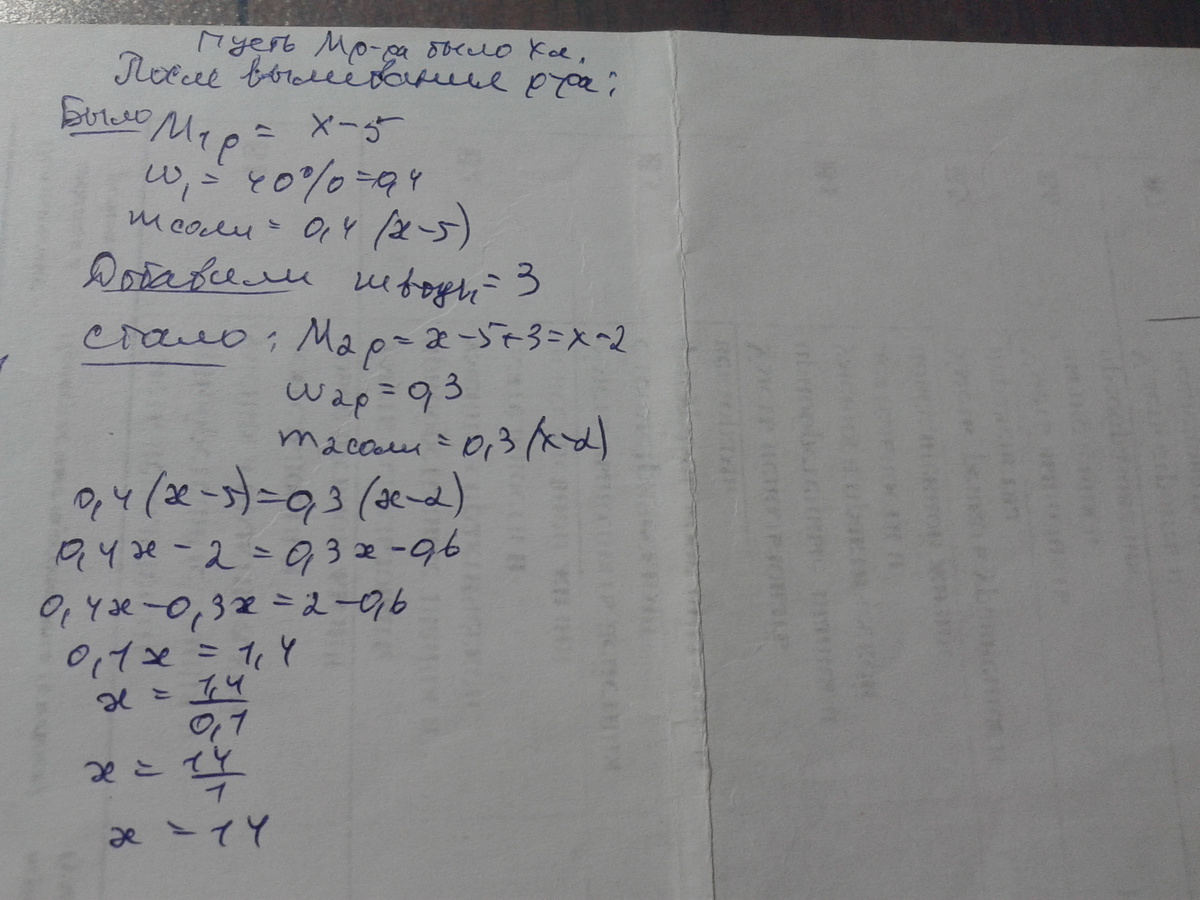 Пусть Mр-ра было хл.
После выливания р-ра;
Было M₁р = х-5
w₁ = 40% = 0,4
mсоли = 0,4 (х-5)
Добавили mводы = 3
стало; M₂р = х-5+3=х-2
w₂р = 0,3
m₂соли = 0,3 (х-2)
0,4(х-5)=0,3(х-2)
0,4х - 2 = 0,3х-0,6
0,4х-0,3х=2-0,6
0,1х = 1,4
х = 1,4/0,1
х = 14/1
х = 14